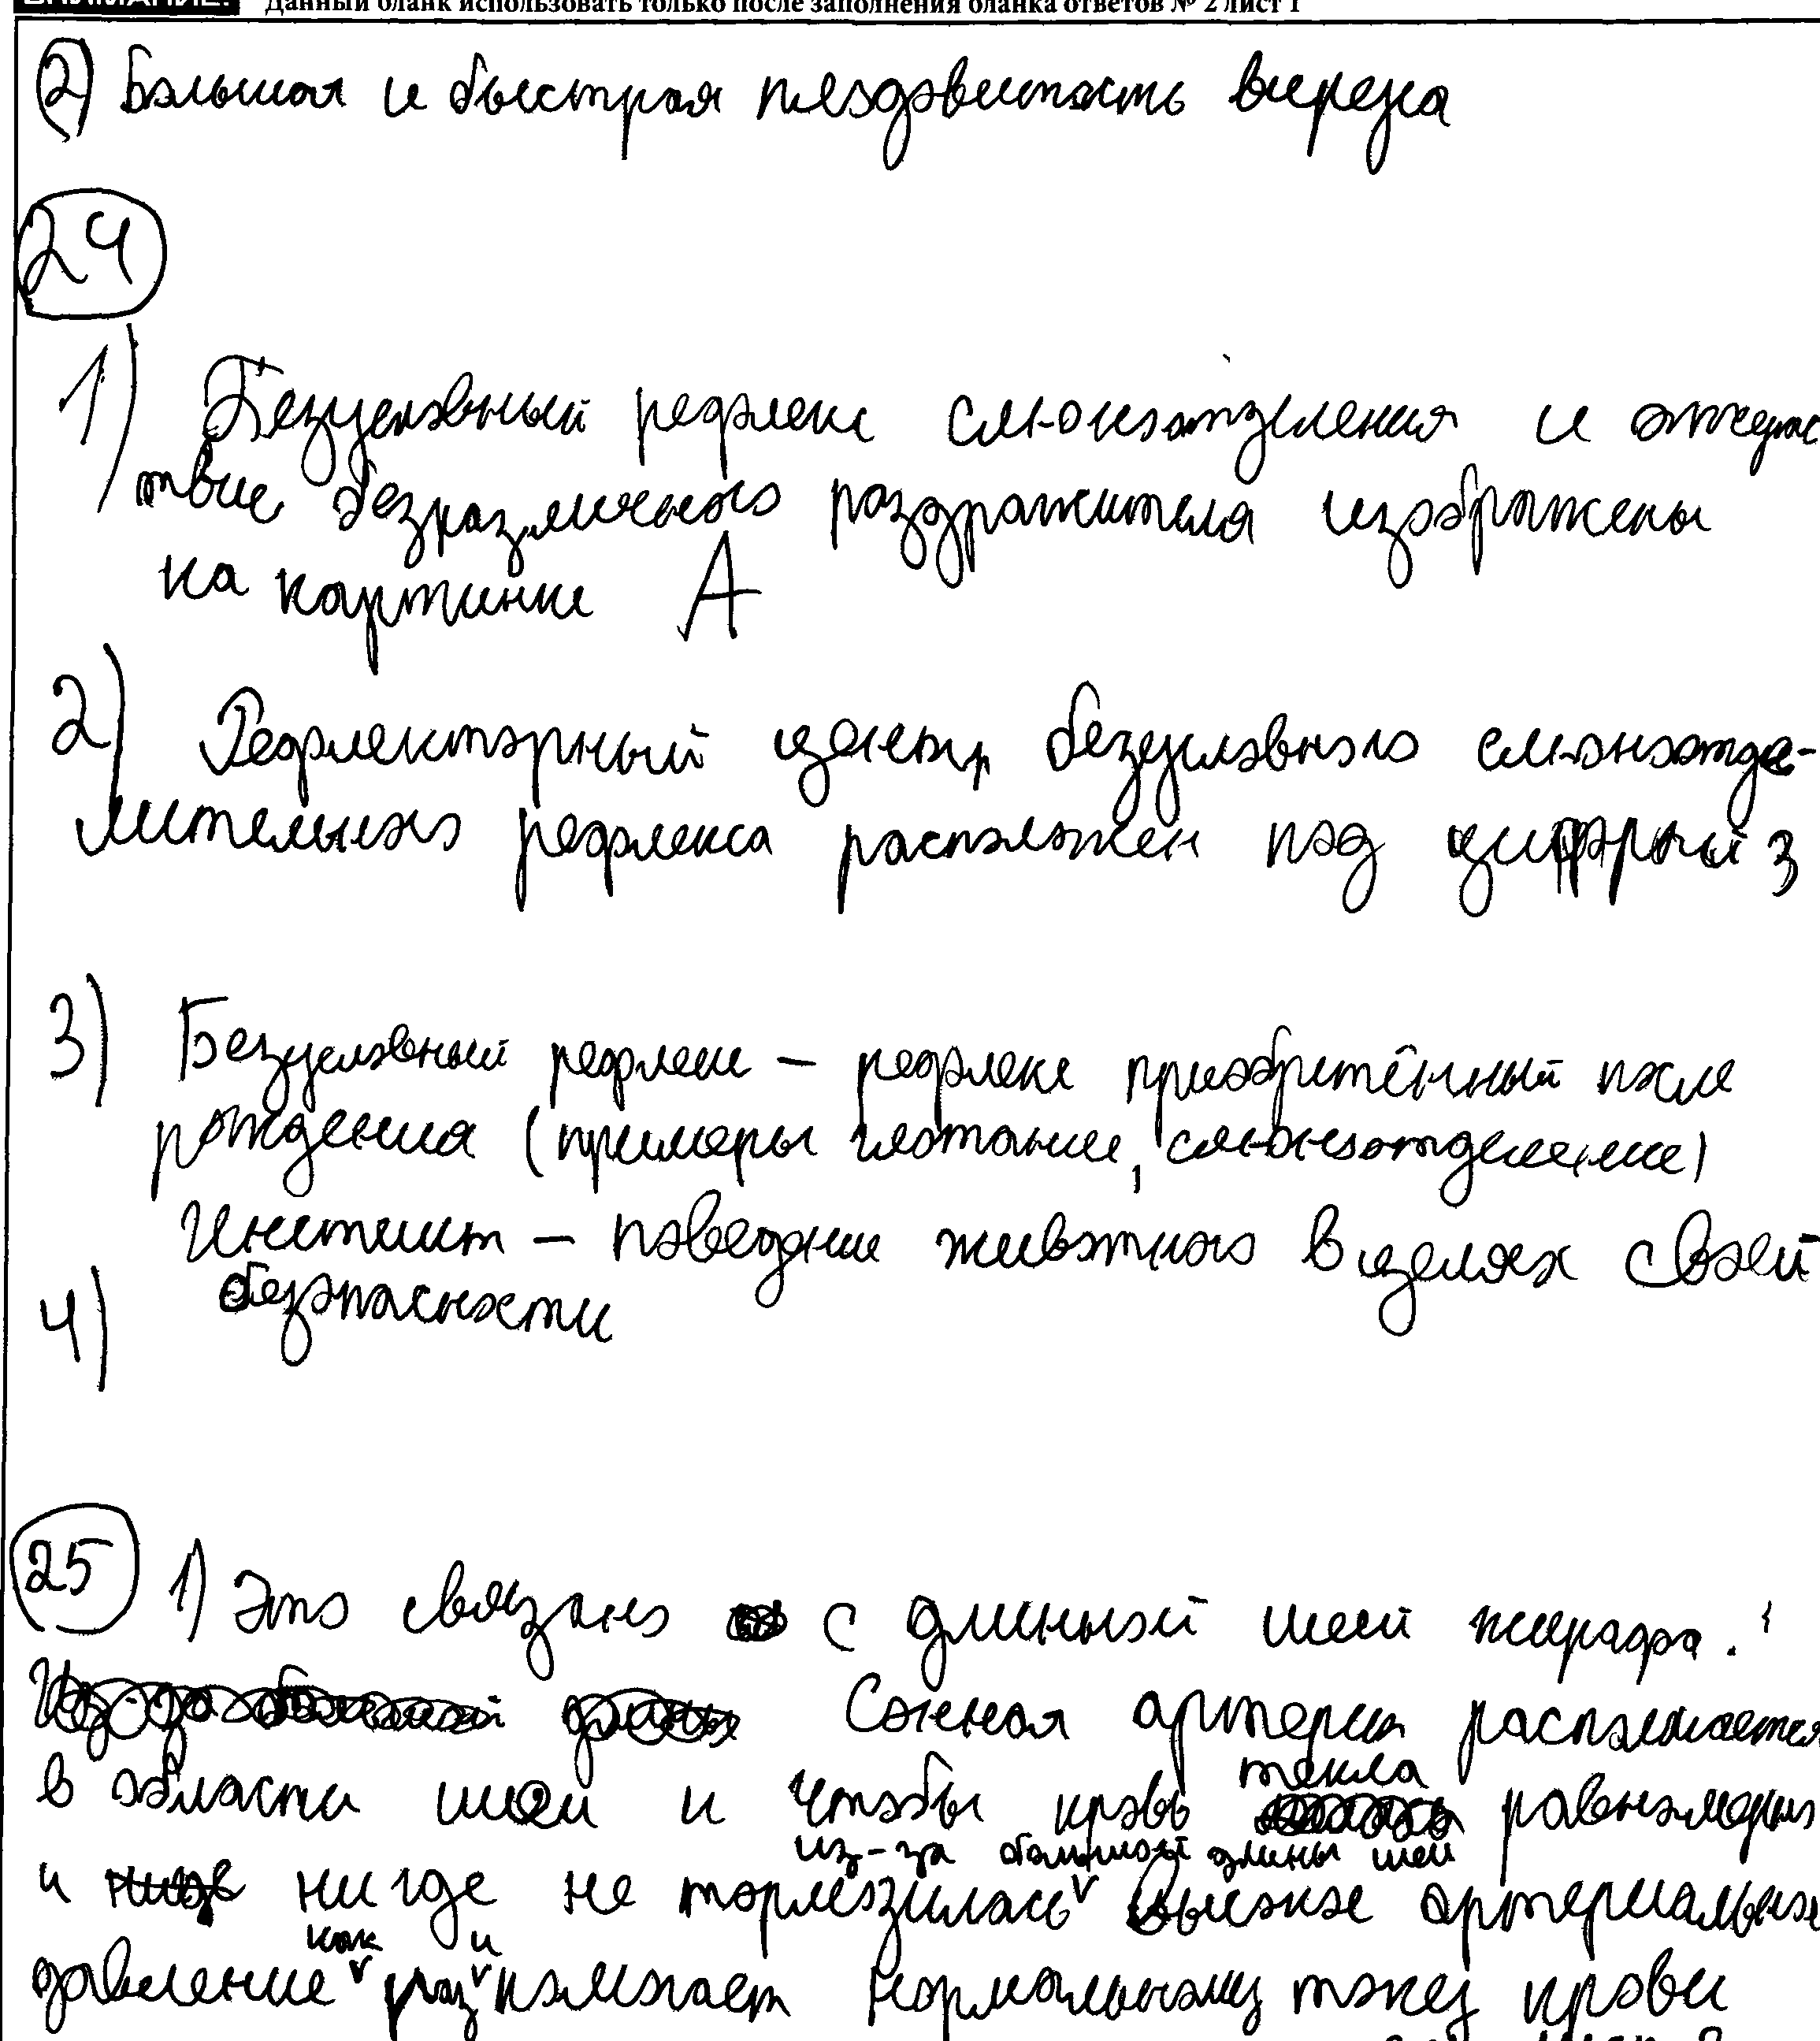 Данный бланк использовать только после заполнения бланка ответов № 2 лист 1
2) Большая и быстрая плодовитость вируса
24
1) Безусловный рефлекс слюноотделения и отсутс
твие безразличного раздражителя изображены
на картинке А
2) Рефлекторный центр безусловного слюноотде-
лительного рефлекса расположен под цифрой 3
3) Безусловный рефлекс – рефлекс приобретённый после
рождения (примеры глотание, слюноотделение)
Инстинкт – поведение животного в целях своей
безопасности
4)
25 1) Это связано с длиной шеи жирафа.
Сонная артерия располагается
в области шеи и чтобы кровь текла равномерно
и нигде не тормозилась из-за большой длины шеи высокое артериальное
давление как раз и помогает нормальному току крови